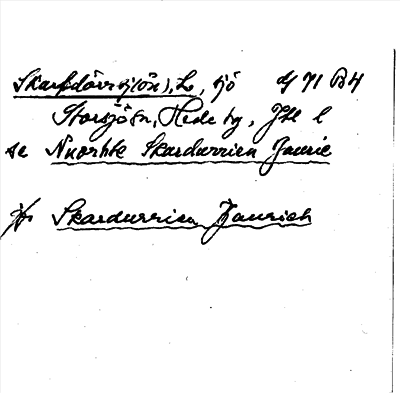 Skarfdörrsj(ön), L., sjö Y 71 B4
Storsjö sn, Hede tg, Jtl l
se Nuorhte Skardurrien Jaurie
jfr Skardurrien Jaurieh